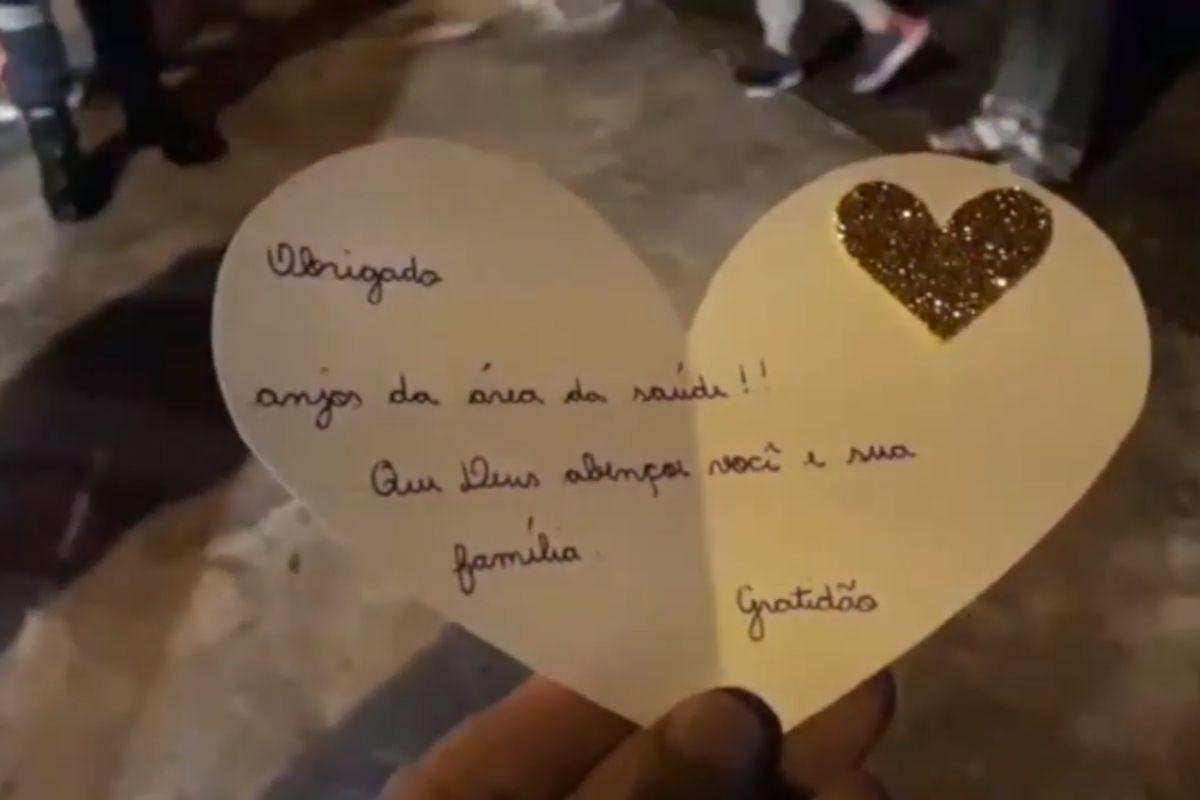 Obrigado
anjos da área da saúde!!
Que Deus abençoe você e sua
família.
Gratidão